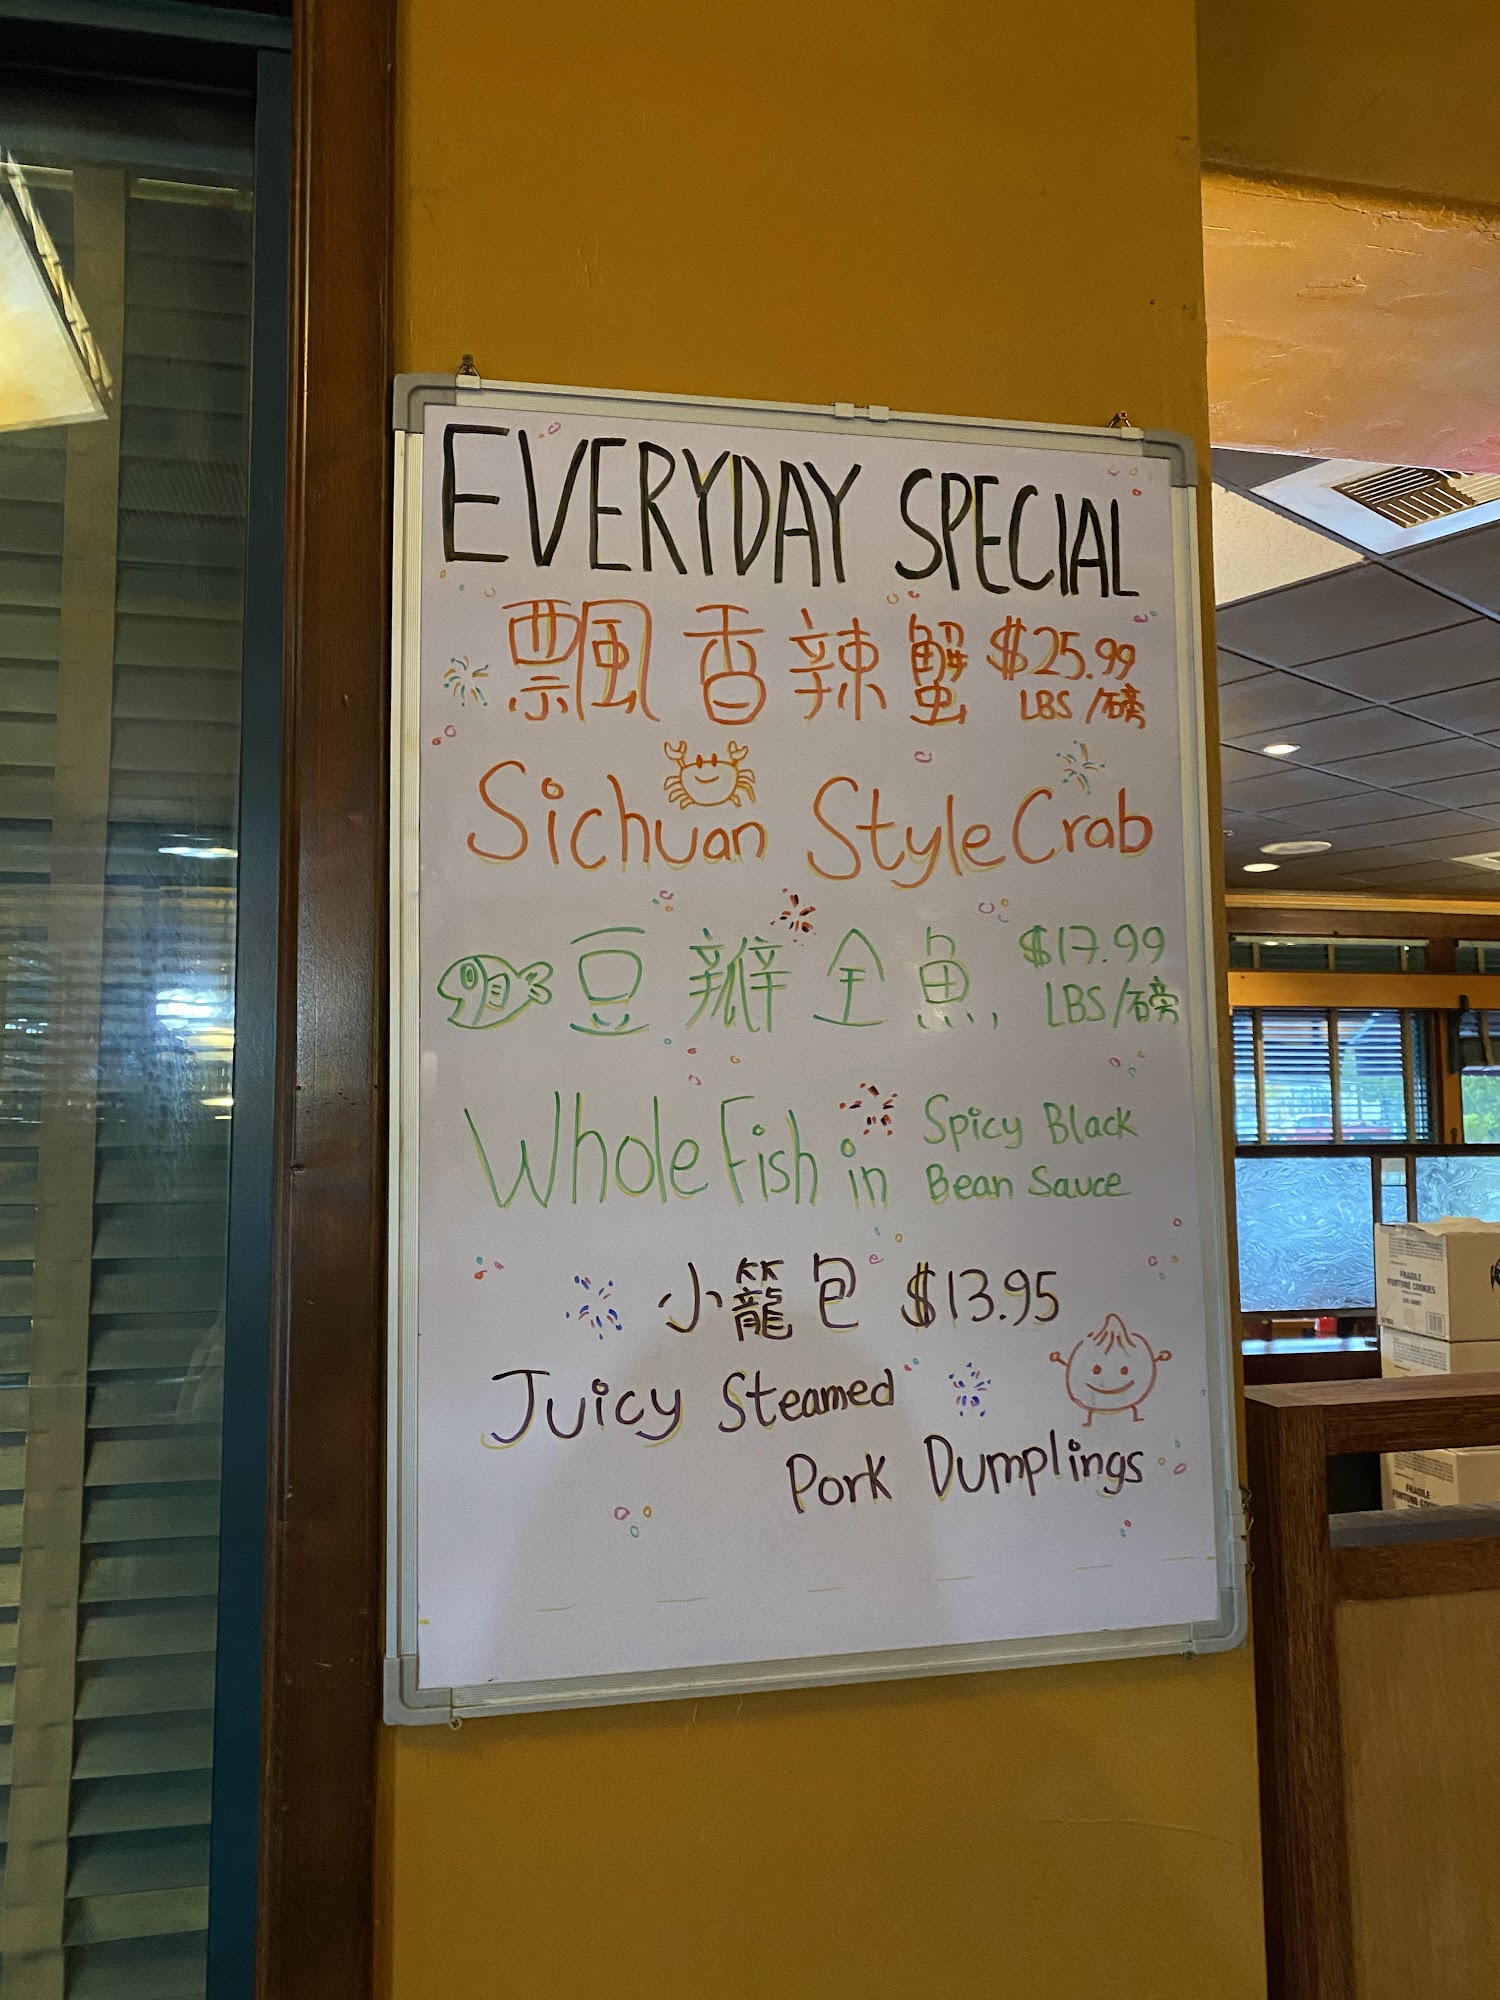 EVERYDAY SPECIAL
飄香辣蟹 $25.99
LBS/磅
Sichuan Style Crab
豆瓣全魚 $17.99
LBS/磅
Whole Fish in Spicy Black
Bean Sauce
小籠包 $13.95
Juicy Steamed
Pork Dumplings
FRAGILE
FORTUNE COOKIES
FRAGILE